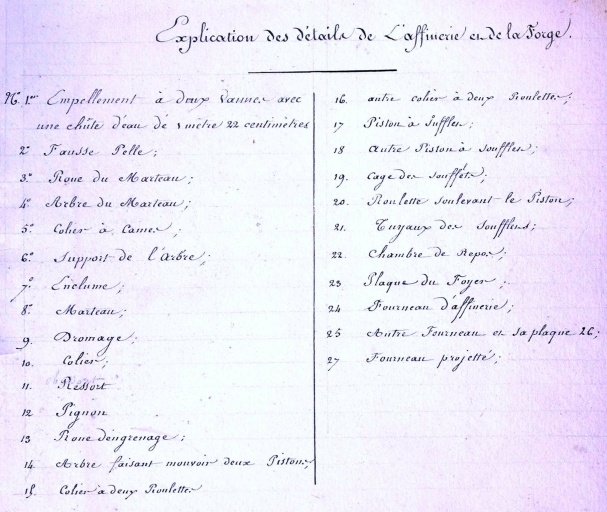 Explication des détails de L'affinerie et de la Forge.
N. 1er Empellement à deux Vannes avec
une chûte d'eau de 1 mètre 22 centimètres
2e Fausse Pelle;
3e Roue du Marteau;
4e Arbre du Marteau;
5e Colier à Cames;
6e Support de l'Arbre;
7e Enclume;
8e Marteau;
9. Dromage;
10. Colier;
11. Ressort
12 Pignon
13 Roue d'engrenage;
14 Arbre faisant mouvoir deux Pistons
15. Colier à deux Roulettes
16. autre colier à deux Roulettes;
17 Piston à Sufflets;
18 autre Piston à soufflets;
19. Cage des soufflets;
20. Roulette soulevant le Piston;
21. Tuyaux des soufflets;
22. Chambre de Repos;
23 Plaque du Foyer;
24 Fourneau d'affinerie;
25 Autre Fourneau et sa plaque 26;
27 Fourneau projetté;